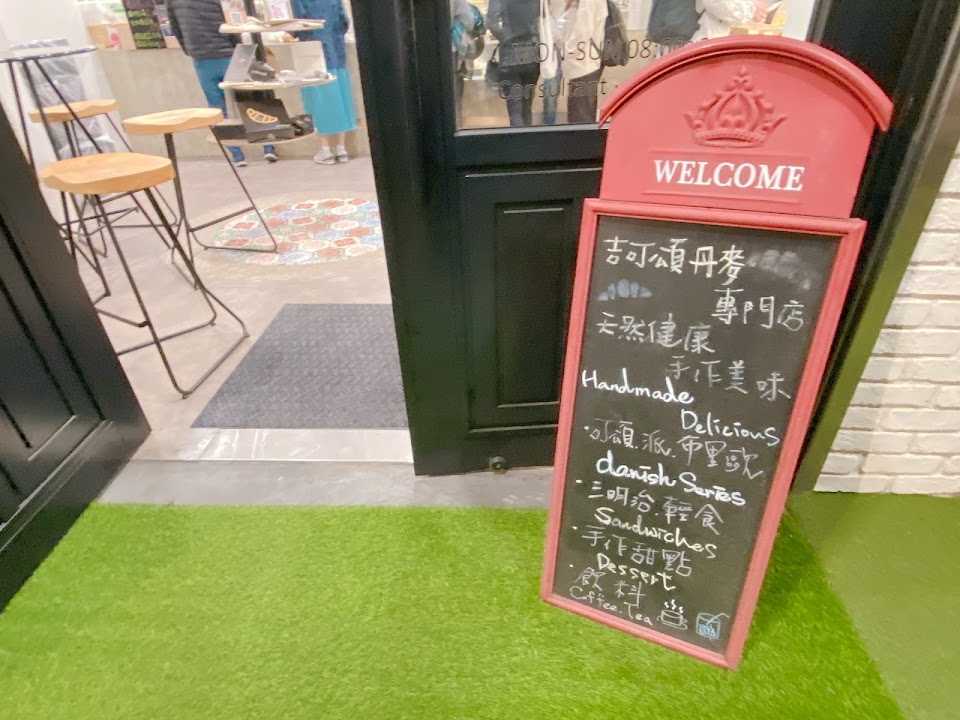 MON-SUN 08:00
Consultant
WELCOME
吉可頌丹麥
專門店
天然健康
手作美味
Handmade
Delicious
·可頌.派.布里歐
danish Series
·三明治.輕食
Sandwiches
·手作甜點
Dessert
·飲料
Coffee.Tea